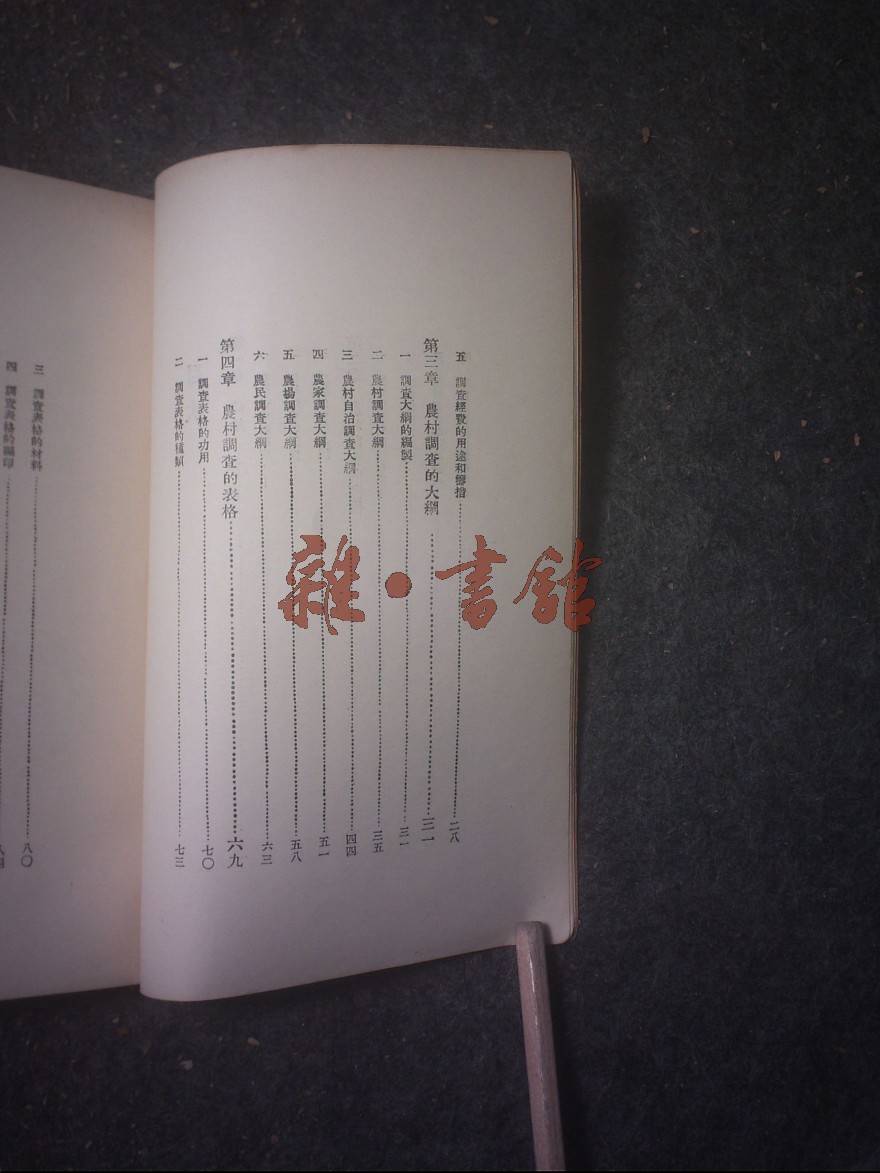 五　調查經費的用途和籌措……二八
第三章　農村調查的大綱……三一
一　調查大綱的編製……三一
二　農村調查大綱……三五
三　農村自治調查大綱……四四
四　農家調查大綱……五一
五　農場調查大綱……五八
六　農民調查大綱……六三
第四章　農村調查的表格……六九
一　調查表格的功用……七〇
二　調查表格的種類……七三
三　調查表格的材料……八〇
四　調查表格的編印……八四
雜·書館